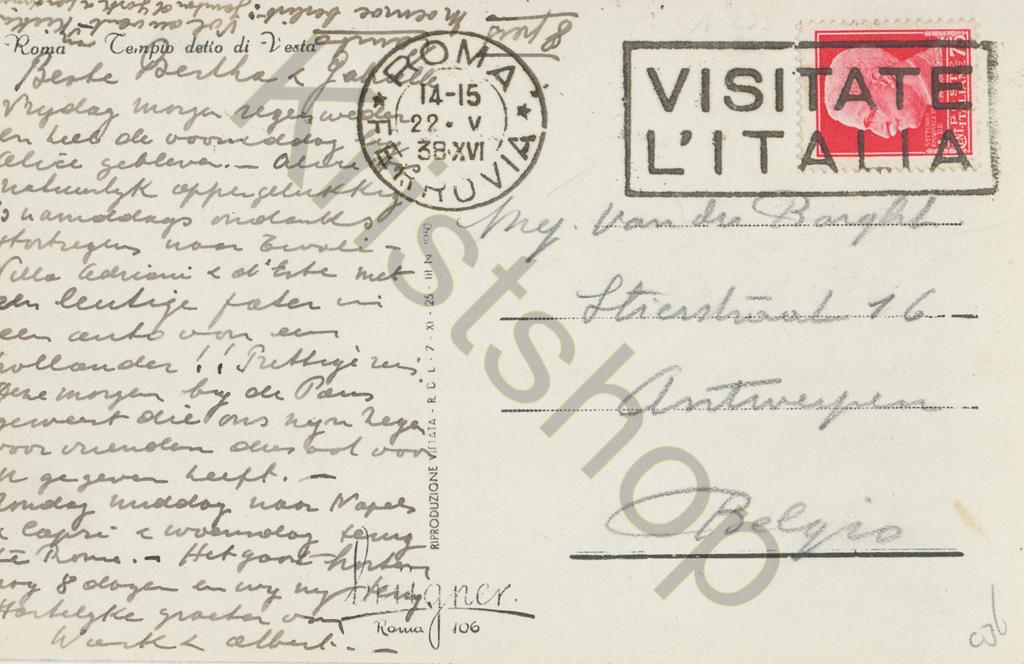 8
Roma Tempio detto di Vesta
Beste Bertha &
Vrydag morgen regenweder
en heel de voormiddag
Alice gebleven. –
natuurlyk
's namiddags ondanks
stortregens naar Tivoli –
Villa Adriani & d'Este met
een leutige pater in
een auto voor een
hollander !! Prettige reis
Deze morgen by de Paus
geweest die ons zyn zegen
voor vrienden dus ook voor
U gegeven heeft. –
Zondag middag naar Napels
& Capri & woensdag terug
te Rome. – Het gaat
nog 8 dagen en wy zyn terug
Hartelyke groeten van
& Albert. –
ROMA FERROVIA
14-15
22 · V
38·XVI
VISITATE
L'ITALIA
POSTE ITALIANE
Mej. Van der Borght
Stierstraat 16
Antwerpen
Belgio
RIPRODUZIONE VIETATA - R. C. L. - 7 - XI - 25 - III N
Roma 106
Kristshop